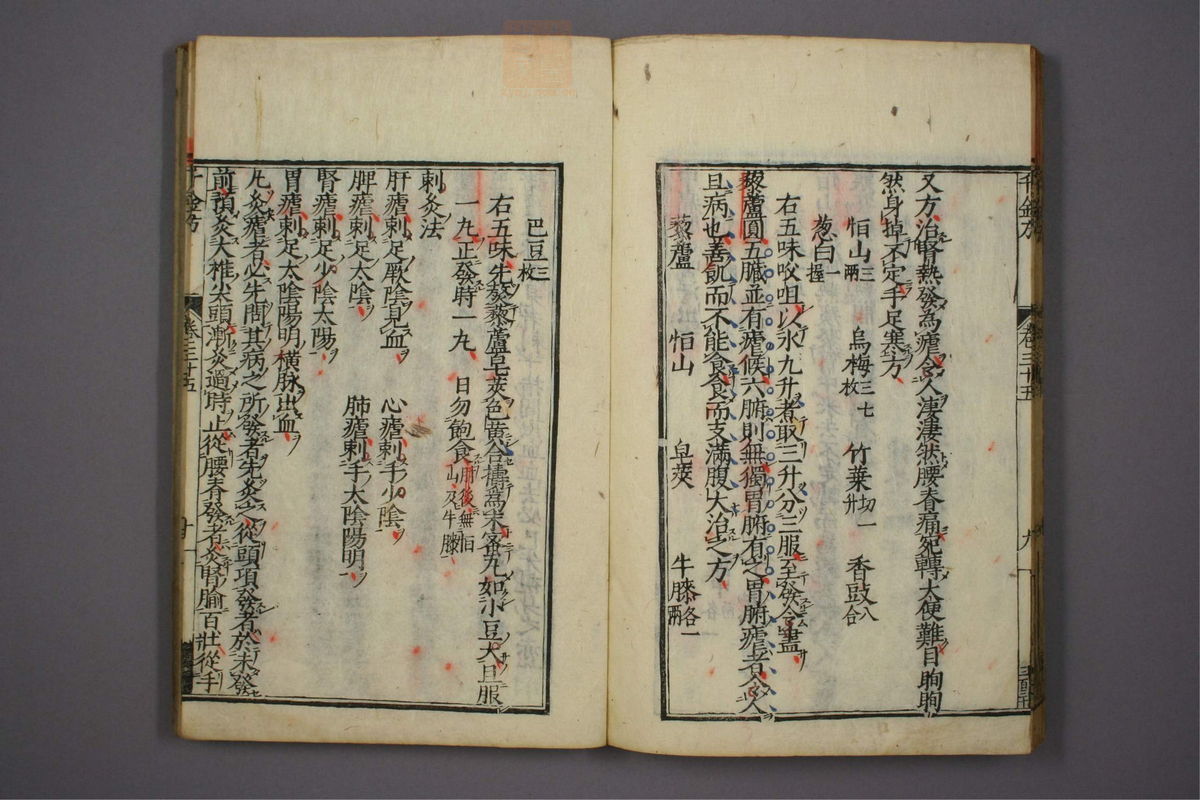 又方治腎熱發為瘧令人淒淒然腰脊痛宛轉大便難目眴眴
然身掉不定手足寒方
恒山三兩 烏梅三七枚 竹葉切一升 香豉八合
葱白一握
右五味㕮咀以水九升煮取三升分三服至發令盡
藜蘆圓五臟並有瘧候六腑則無獨胃腑有之胃腑瘧者令人
且病也善飢而不能食食而支滿腹大治之方
藜蘆 恒山 皂莢 牛膝各一兩
巴豆三枚
右五味先熬藜蘆皂莢色黃合擣為末蜜丸如小豆大旦服
一丸正發時一丸 日勿飽食
刺灸法
肝瘧刺足厥陰見血 心瘧刺手少陰
脾瘧刺足太陰 肺瘧刺手太陰陽明
腎瘧刺足少陰太陽
胃瘧刺足太陰陽明橫脉出血
凡灸瘧者必先問其病之所發者先灸之從頭項發者於未發
前預灸大椎尖頭漸灸過時止從腰脊發者灸腎腧百壯從手
千金方 卷三十五